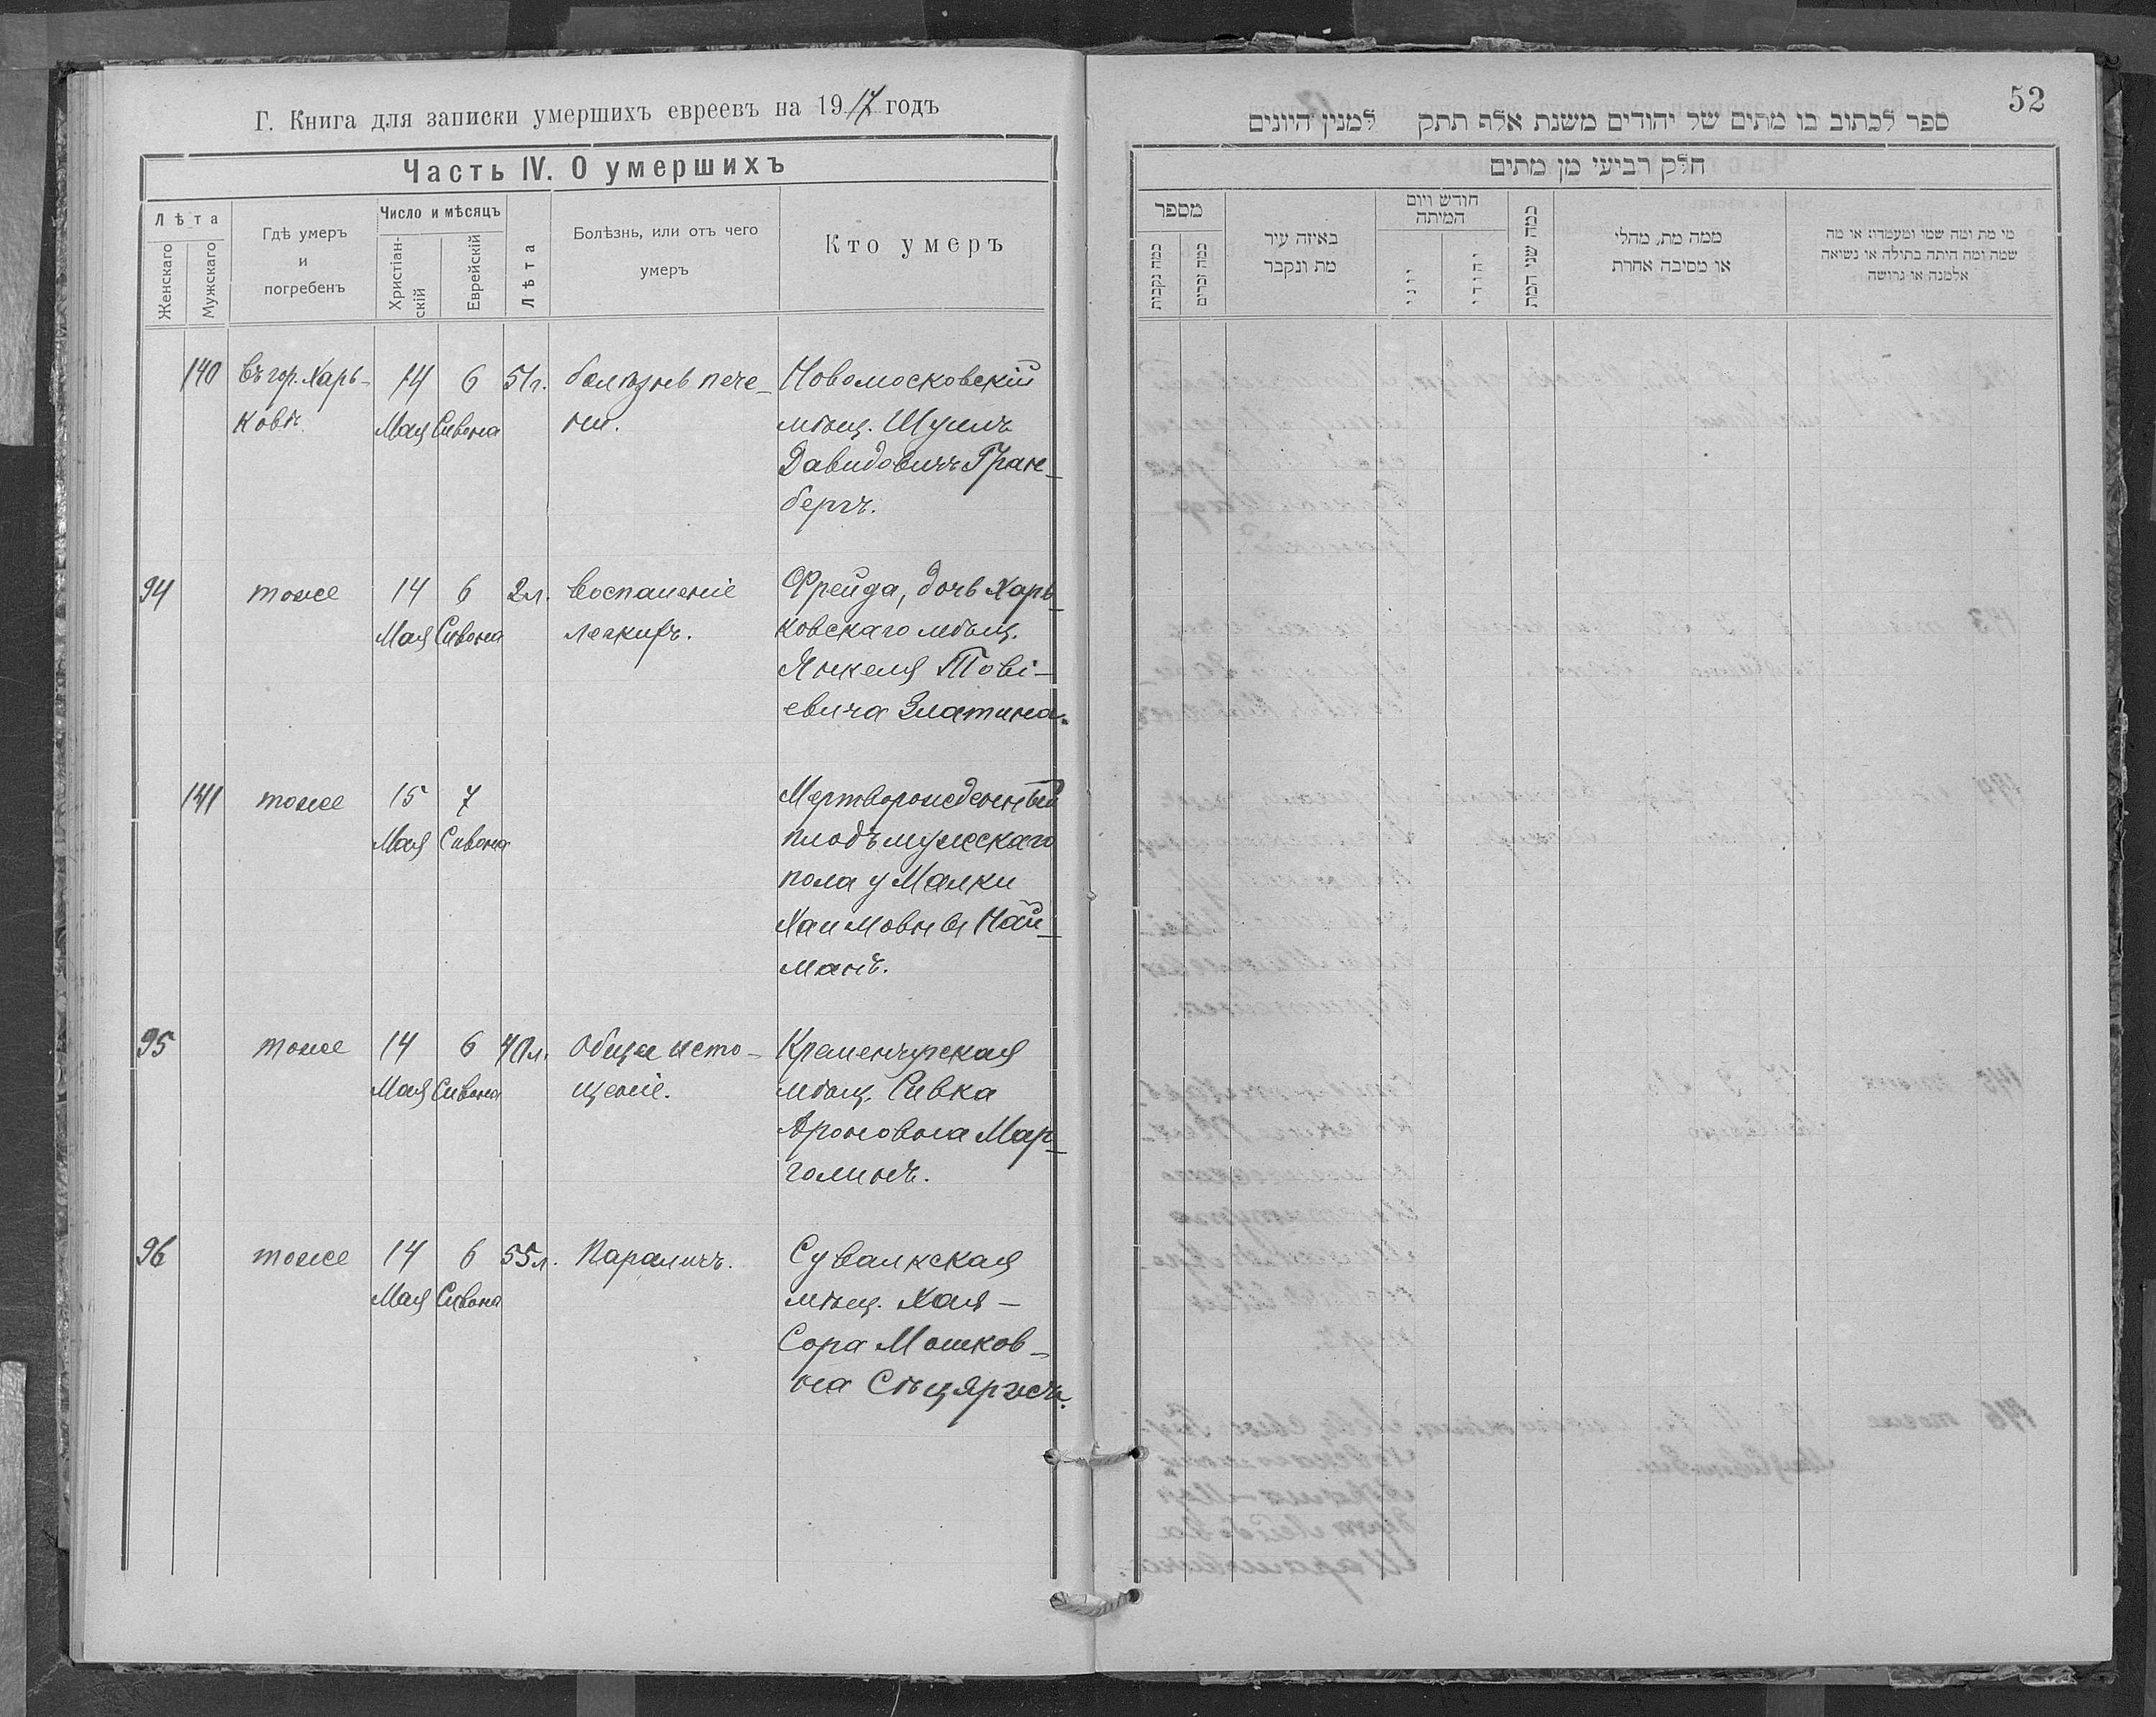 Г. Книга для записки умершихъ евреевъ на 1917 годъ
Часть IV. О умершихъ
Лѣта
Женскаго
Мужскаго
Гдѣ умеръ
и
погребенъ
Число и мѣсяцъ
Христіан-
скій
Еврейскій
Лѣта
Болѣзнь, или отъ чего
умеръ
Кто умеръ
140 Въ гор. Харь- 14 6 51г. болѣзнь пече- Новомосковскій
ковѣ Мая Сивона ни. мѣщ. Шумъ
Давидовичъ Гран-
бергъ.
94 тоже 14 6 2л. воспаленіе Фрейда, дочь Харь-
Мая Сивона легкихъ. ковскаго мѣщ.
Янкеля Тові-
евича Златина.
141 тоже 15 7 Мертворожденный
Мая Сивона плодъ мужскаго
пола у Малки
Хаимовны Най-
манъ.
95 тоже 14 6 40л. Общее исто- Кременчугская
Мая Сивона щеніе. мѣщ. Сивка
Ароновна Мар-
голинъ.
96 тоже 14 6 55л. Параличъ. Сувалкская
Мая Сивона мѣщ. Хая-
Сора Мошков-
на
52
ספר לכתוב בו מתים של יהודים משנת אלף תתק למנין היונים
חלק רביעי מן מתים
מספר
כמה נקבות
כמה זכרים
באיזה עיר
מת ונקבר
חודש ויום
המיתה
יוני
יהודי
כמה שני המת
ממה מת, מחלי
או מסיבה אחרת
מי מת ומה שמו ומעמדו: או מה
שמה ומה היתה בתולה או נשואה
אלמנה או גרושה